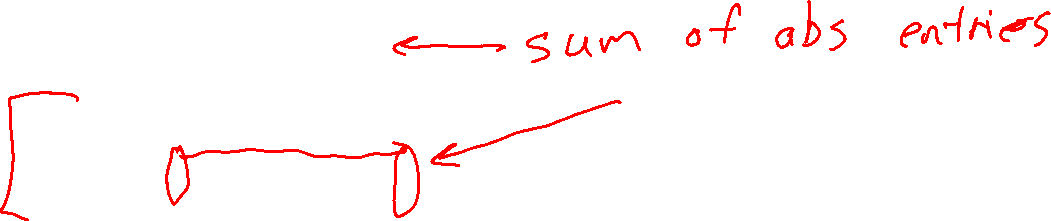 sum of abs entries